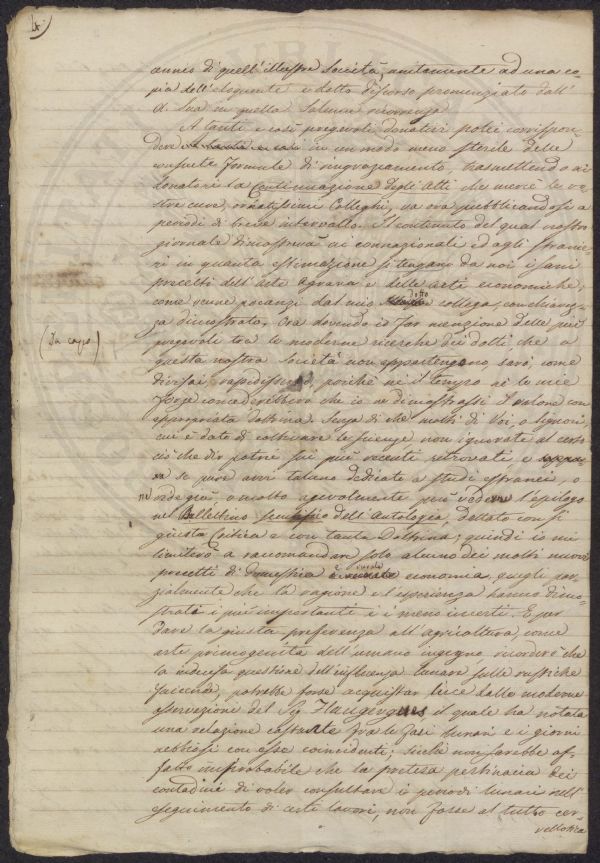 4.)
annio di quell'illustre Società, unitamente ad una co=
pia dell'elegante e dotto discorso pronunziato dall'
A. Sua in quella solenne ricorrenza
A tanti e così pregevoli donativi potei corrispon=
dere in un modo meno sterile delle
consuete formule di ringraziamento, trasmettendo ai
donatori la Continuazione degli Atti che mercè le vo=
stre cure, ornatissimi Colleghi, va ora pubblicandosi a
periodi di breve intervallo. Il contenuto del qual nostro
giornale dimostrerà ai connazionali ed agli stranie=
ri in quanta estimazione si tengano da noi i sani
precetti dell'arte agraria e delle arti economiche,
come venne pocanzi dal mio dotto collega, con chiarez=
za dimostrato. Ora dovendo io far menzione delle più
(Da capo)
pregevoli tra le moderne ricerche dei dotti che a
questa nostra società non appartengono, sarò, come
divisai, rapidissimo, poichè nè il tempo nè le mie
forze concederebbero che io ne dimostrassi il valore con
appropriata dottrina. Senza di che molti di Voi, o Signori,
cui è dato di coltivare le scienze non ignorate al certo
ciò che dir potrei sui più recenti ritrovati e
se pure avvi taluno dedicato a studi estranei, o
ne ode già o molto agevolmente può vederne l'epilogo
nel Bullettino scientifico dell'Antologia, dettato con sì
giusta Critica e con tanta Dottrina; quindi io mi
limiterò a raccomandare solo alcuno dei molti nuovi
precetti di domestica e rurale economia, quegli par=
zialmente che la ragione e l'esperienza hanno dimo=
strati i più importanti e i meno incerti. E per
dare la giusta preferenza all'agricoltura, come
arte primogenita dell'umano ingegno ricorderò che
la indecisa questione dell'influenza lunare sulle rustiche
faccende, potrebbe forse acquistar luce dalle moderne
osservazioni del Flaugergues il quale ha notata
una relazione costante fra le fasi lunari e i giorni
nebbiosi con esse coincidenti; sicchè non sarebbe af=
fatto improbabile che la pretesa pertinacia dei
contadini di voler consultare i periodi lunari nell'
eseguimento di certi lavori, non fosse al tutto cer=
vellotica